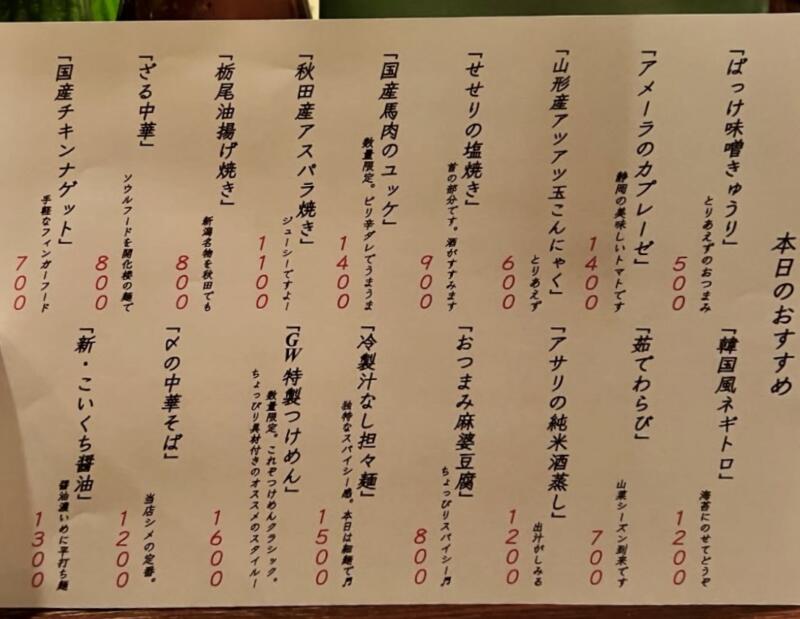 本日のおすすめ
「ばっけ味噌きゅうり」
とりあえずのおつまみ
500
「アメーラのカプレーゼ」
静岡の美味しいトマトです
1400
「山形産アツアツ玉こんにゃく」
とりあえず
600
「せせりの塩焼き」
首の部分です。酒がすすみます
900
「国産馬肉のユッケ」
数量限定。ピリ辛ダレでうまうま
1400
「秋田産アスパラ焼き」
ジューシーですよー
1100
「栃尾油揚げ焼き」
新潟名物を秋田でも
800
「ざる中華」
ソウルフードを開化楼の麺で
800
「国産チキンナゲット」
手軽なフィンガーフード
700
「韓国風ネギトロ」
海苔にのせてどうぞ
1200
「茹でわらび」
山菜シーズン到来です
700
「アサリの純米酒蒸し」
出汁がしみる
1200
「おつまみ麻婆豆腐」
ちょっぴりスパイシー♬
800
「冷製汁なし担々麺」
独特なスパイシー感。本日は細麺で♬
1500
「GW特製つけめん」
数量限定。これぞつけめんクラシック。
ちょっぴり具材付きのオススメのスタイルー
1600
「〆の中華そば」
当店シメの定番。
1200
「新・こいくち醤油」
醤油濃いめに平打ち麺
1300